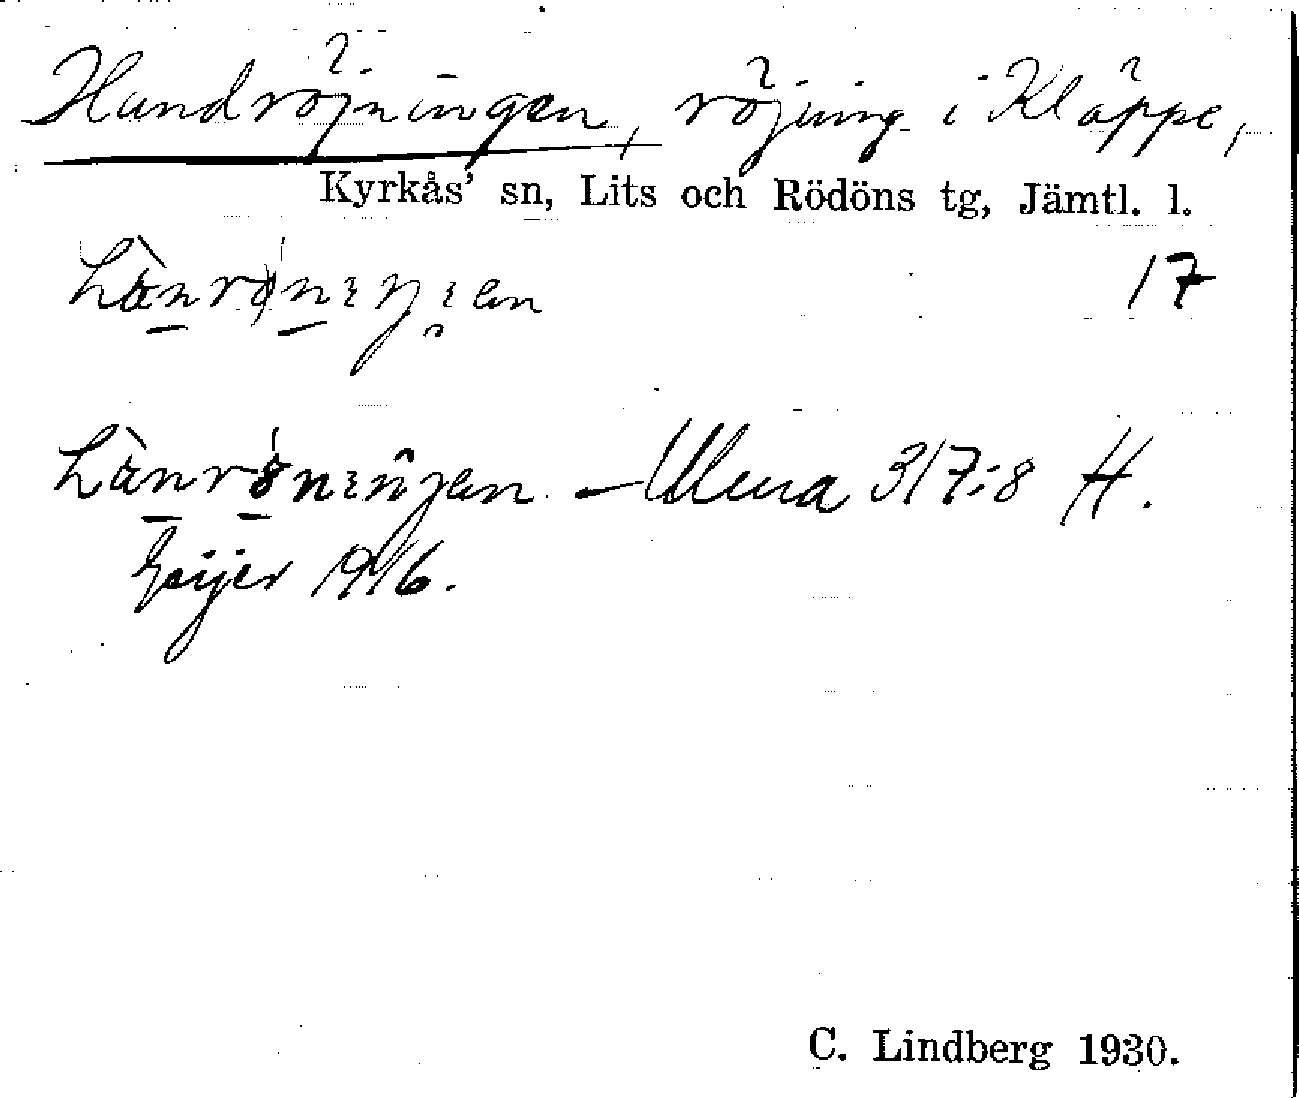 Handröjningen, röjning i Kläppe,
Kyrkås' sn, Lits och Rödöns tg, Jämtl. l.
17
Ulma 317:8 H.
Geijer 1916.
C. Lindberg 1930.